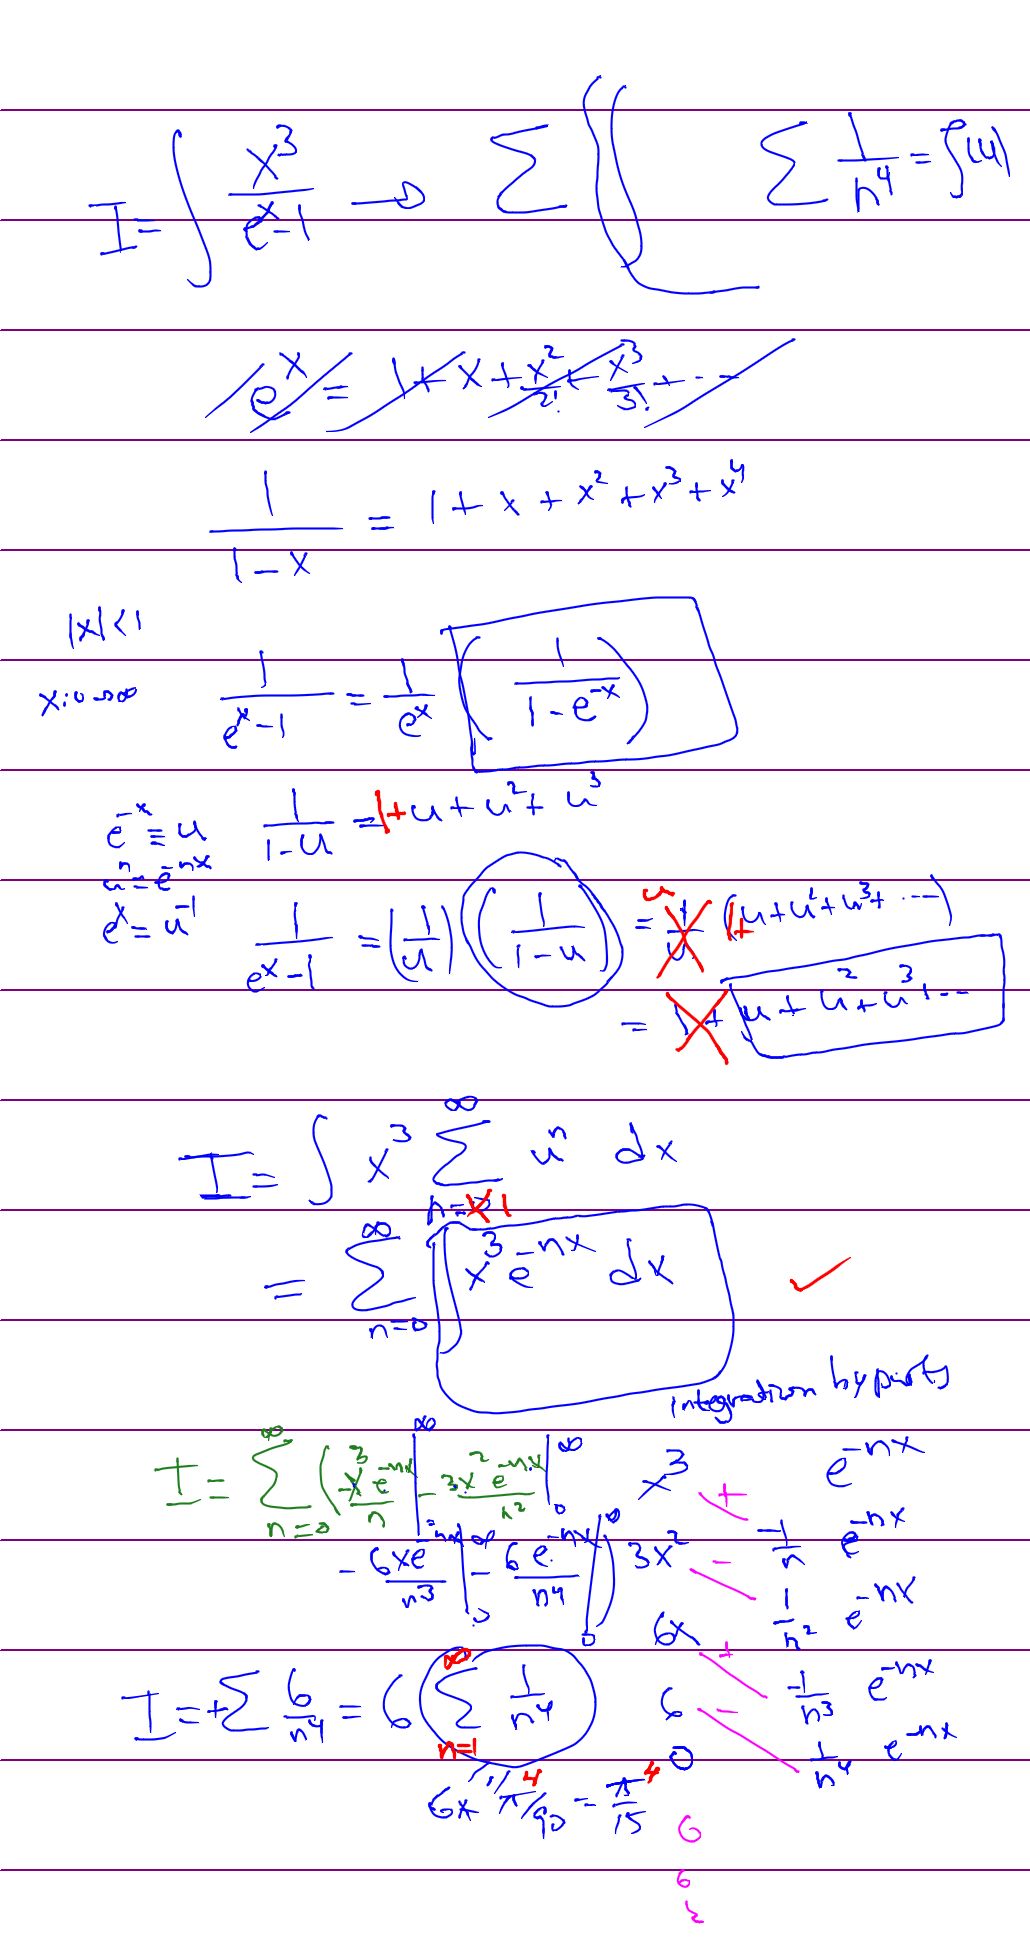 I = ∫ x³/(eˣ-1) → Σ ∫ Σ 1/n⁴ = ζ(4)
eˣ = 1 + x + x²/2! + x³/3! + ...
1/(1-x) = 1 + x + x² + x³ + x⁴
|x| < 1
x: 0 → ∞ 1/(eˣ-1) = 1/eˣ (1/(1-e⁻ˣ))
e⁻ˣ ≡ u 1/(1-u) = 1+ u + u² + u³
uⁿ = e⁻ⁿˣ
eˣ = u⁻¹ 1/(eˣ-1) = (1/u) (1/(1-u)) = u 1/u (1+ u + u² + u³ + ...)
= 1 + u + u² + u³ + ...
I = ∫ x³ Σ_{n=1}^{∞} uⁿ dx
= Σ_{n=0}^{∞} ∫ x³ e⁻ⁿˣ dx ✓
integration by parts
I = Σ_{n=0}^{∞} ( -x³e⁻ⁿˣ/n |₀^∞ - 3x²e⁻ⁿˣ/n² |₀^∞ x³ + e⁻ⁿˣ
- 6xe⁻ⁿˣ/n³ |₀^∞ - 6e⁻ⁿˣ/n⁴ |₀^∞ ) 3x² - -1/n e⁻ⁿˣ
6x + 1/n² e⁻ⁿˣ
I = + Σ 6/n⁴ = 6 Σ_{n=1}^{∞} 1/n⁴ 6 - -1/n³ e⁻ⁿˣ
0 1/n⁴ e⁻ⁿˣ
6x π⁴/90 = π⁴/15
6
6